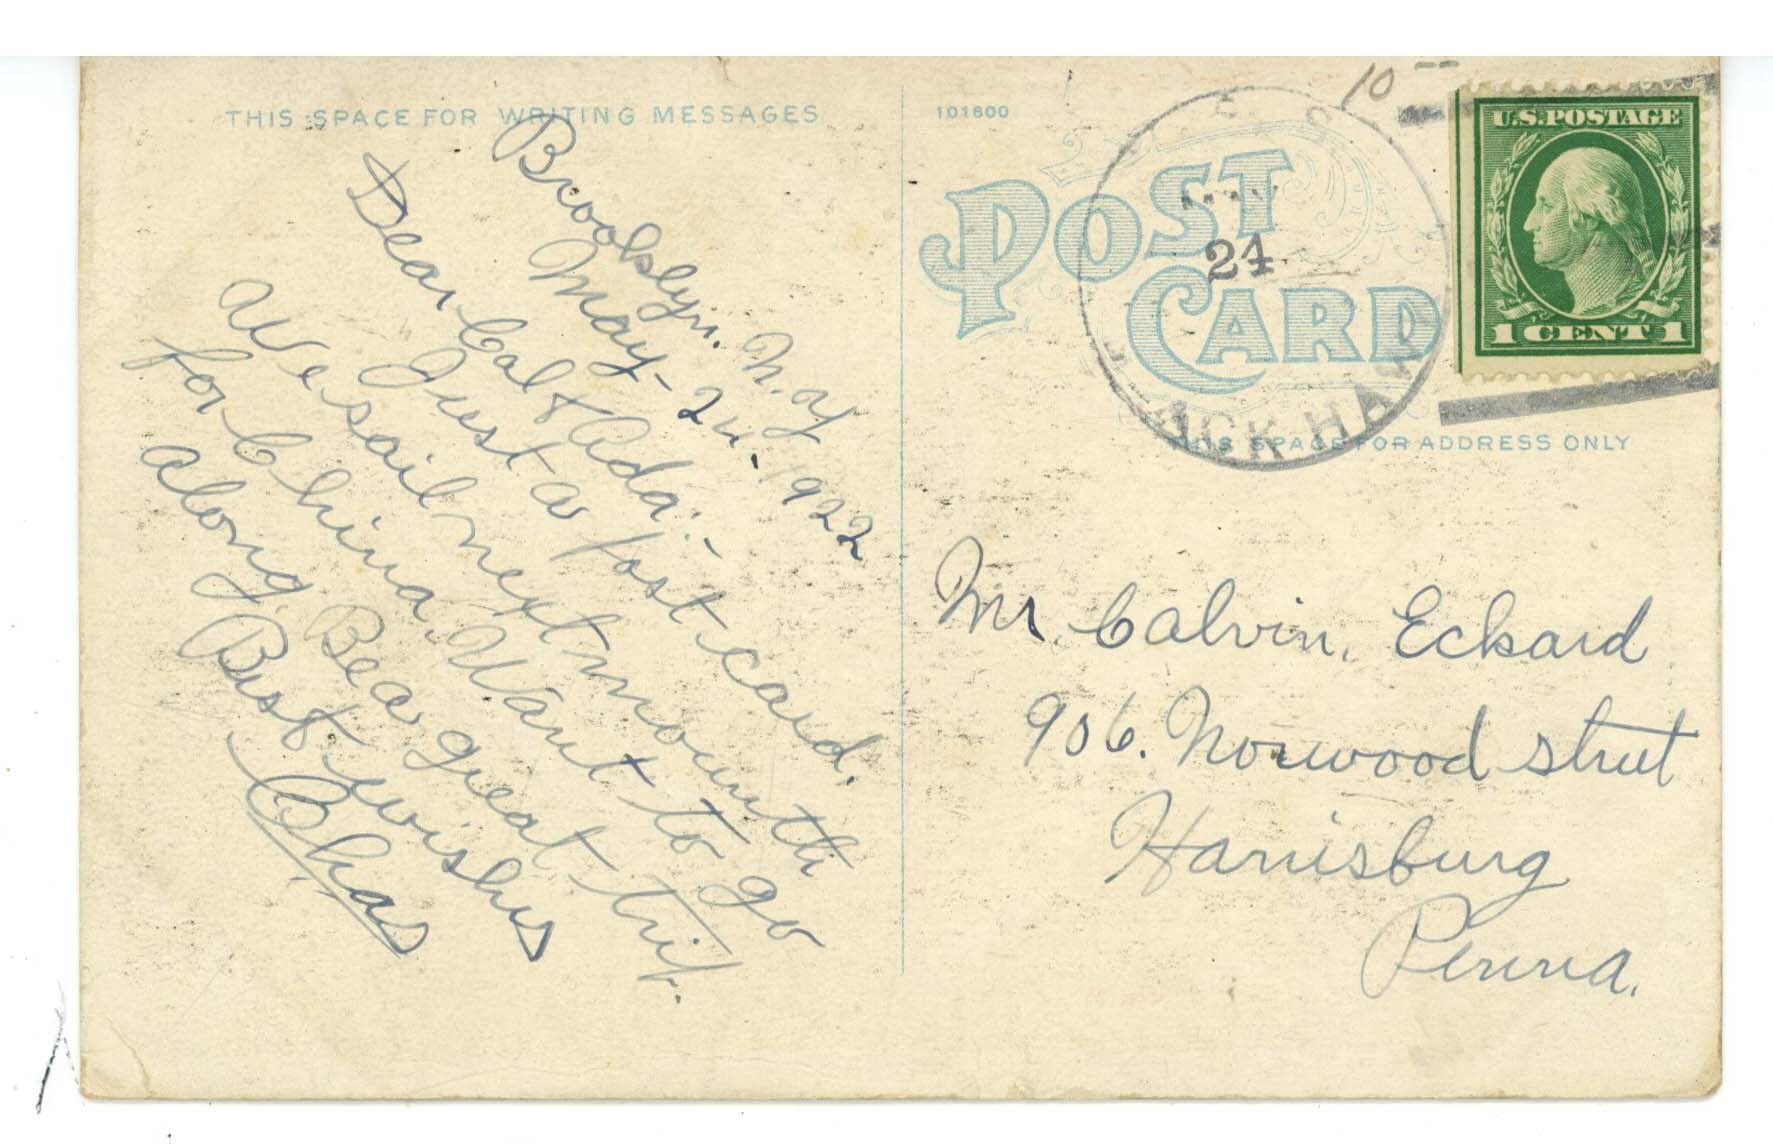 THIS SPACE FOR WRITING MESSAGES
Brooklyn. N. Y
May - 24. 1922
Dear Cal & Ada: -
Just a post card.
We sail next mounth
for China. Want to go
along. Be a great trip.
Best wishes
Chas
101600
10
POST
CARD
MAY
24
U.S. POSTAGE
1 CENT 1
THIS SPACE FOR ADDRESS ONLY
Mr. Calvin. Eckard
906. Norwood street
Harrisburg
Penna.